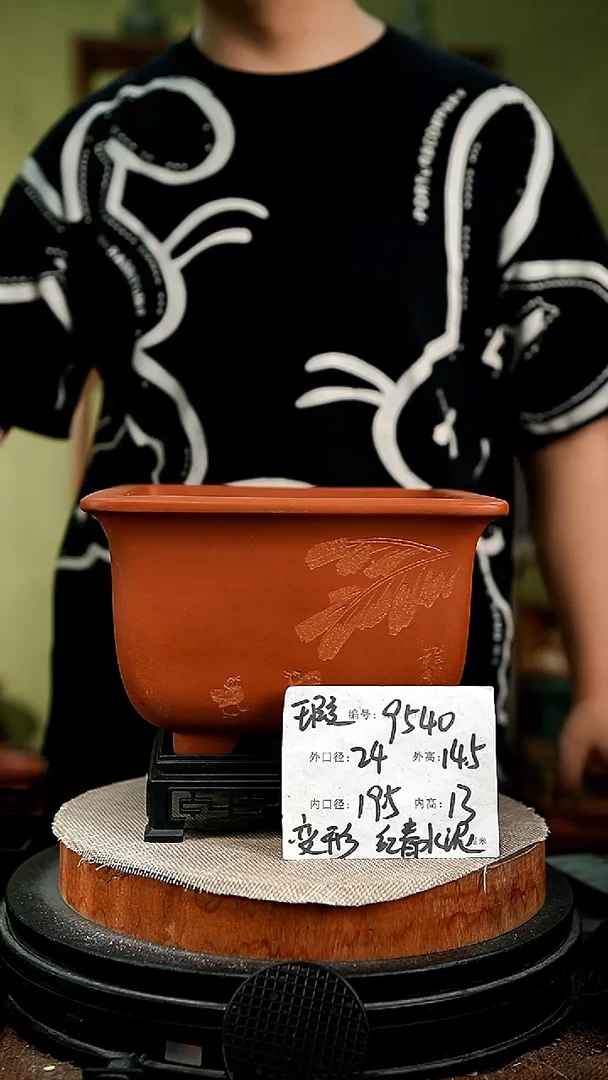 瑕疵 编号: 9540
外口径: 24 外高: 14.5
内口径: 19.5 内高: 13
变形 红春水泥